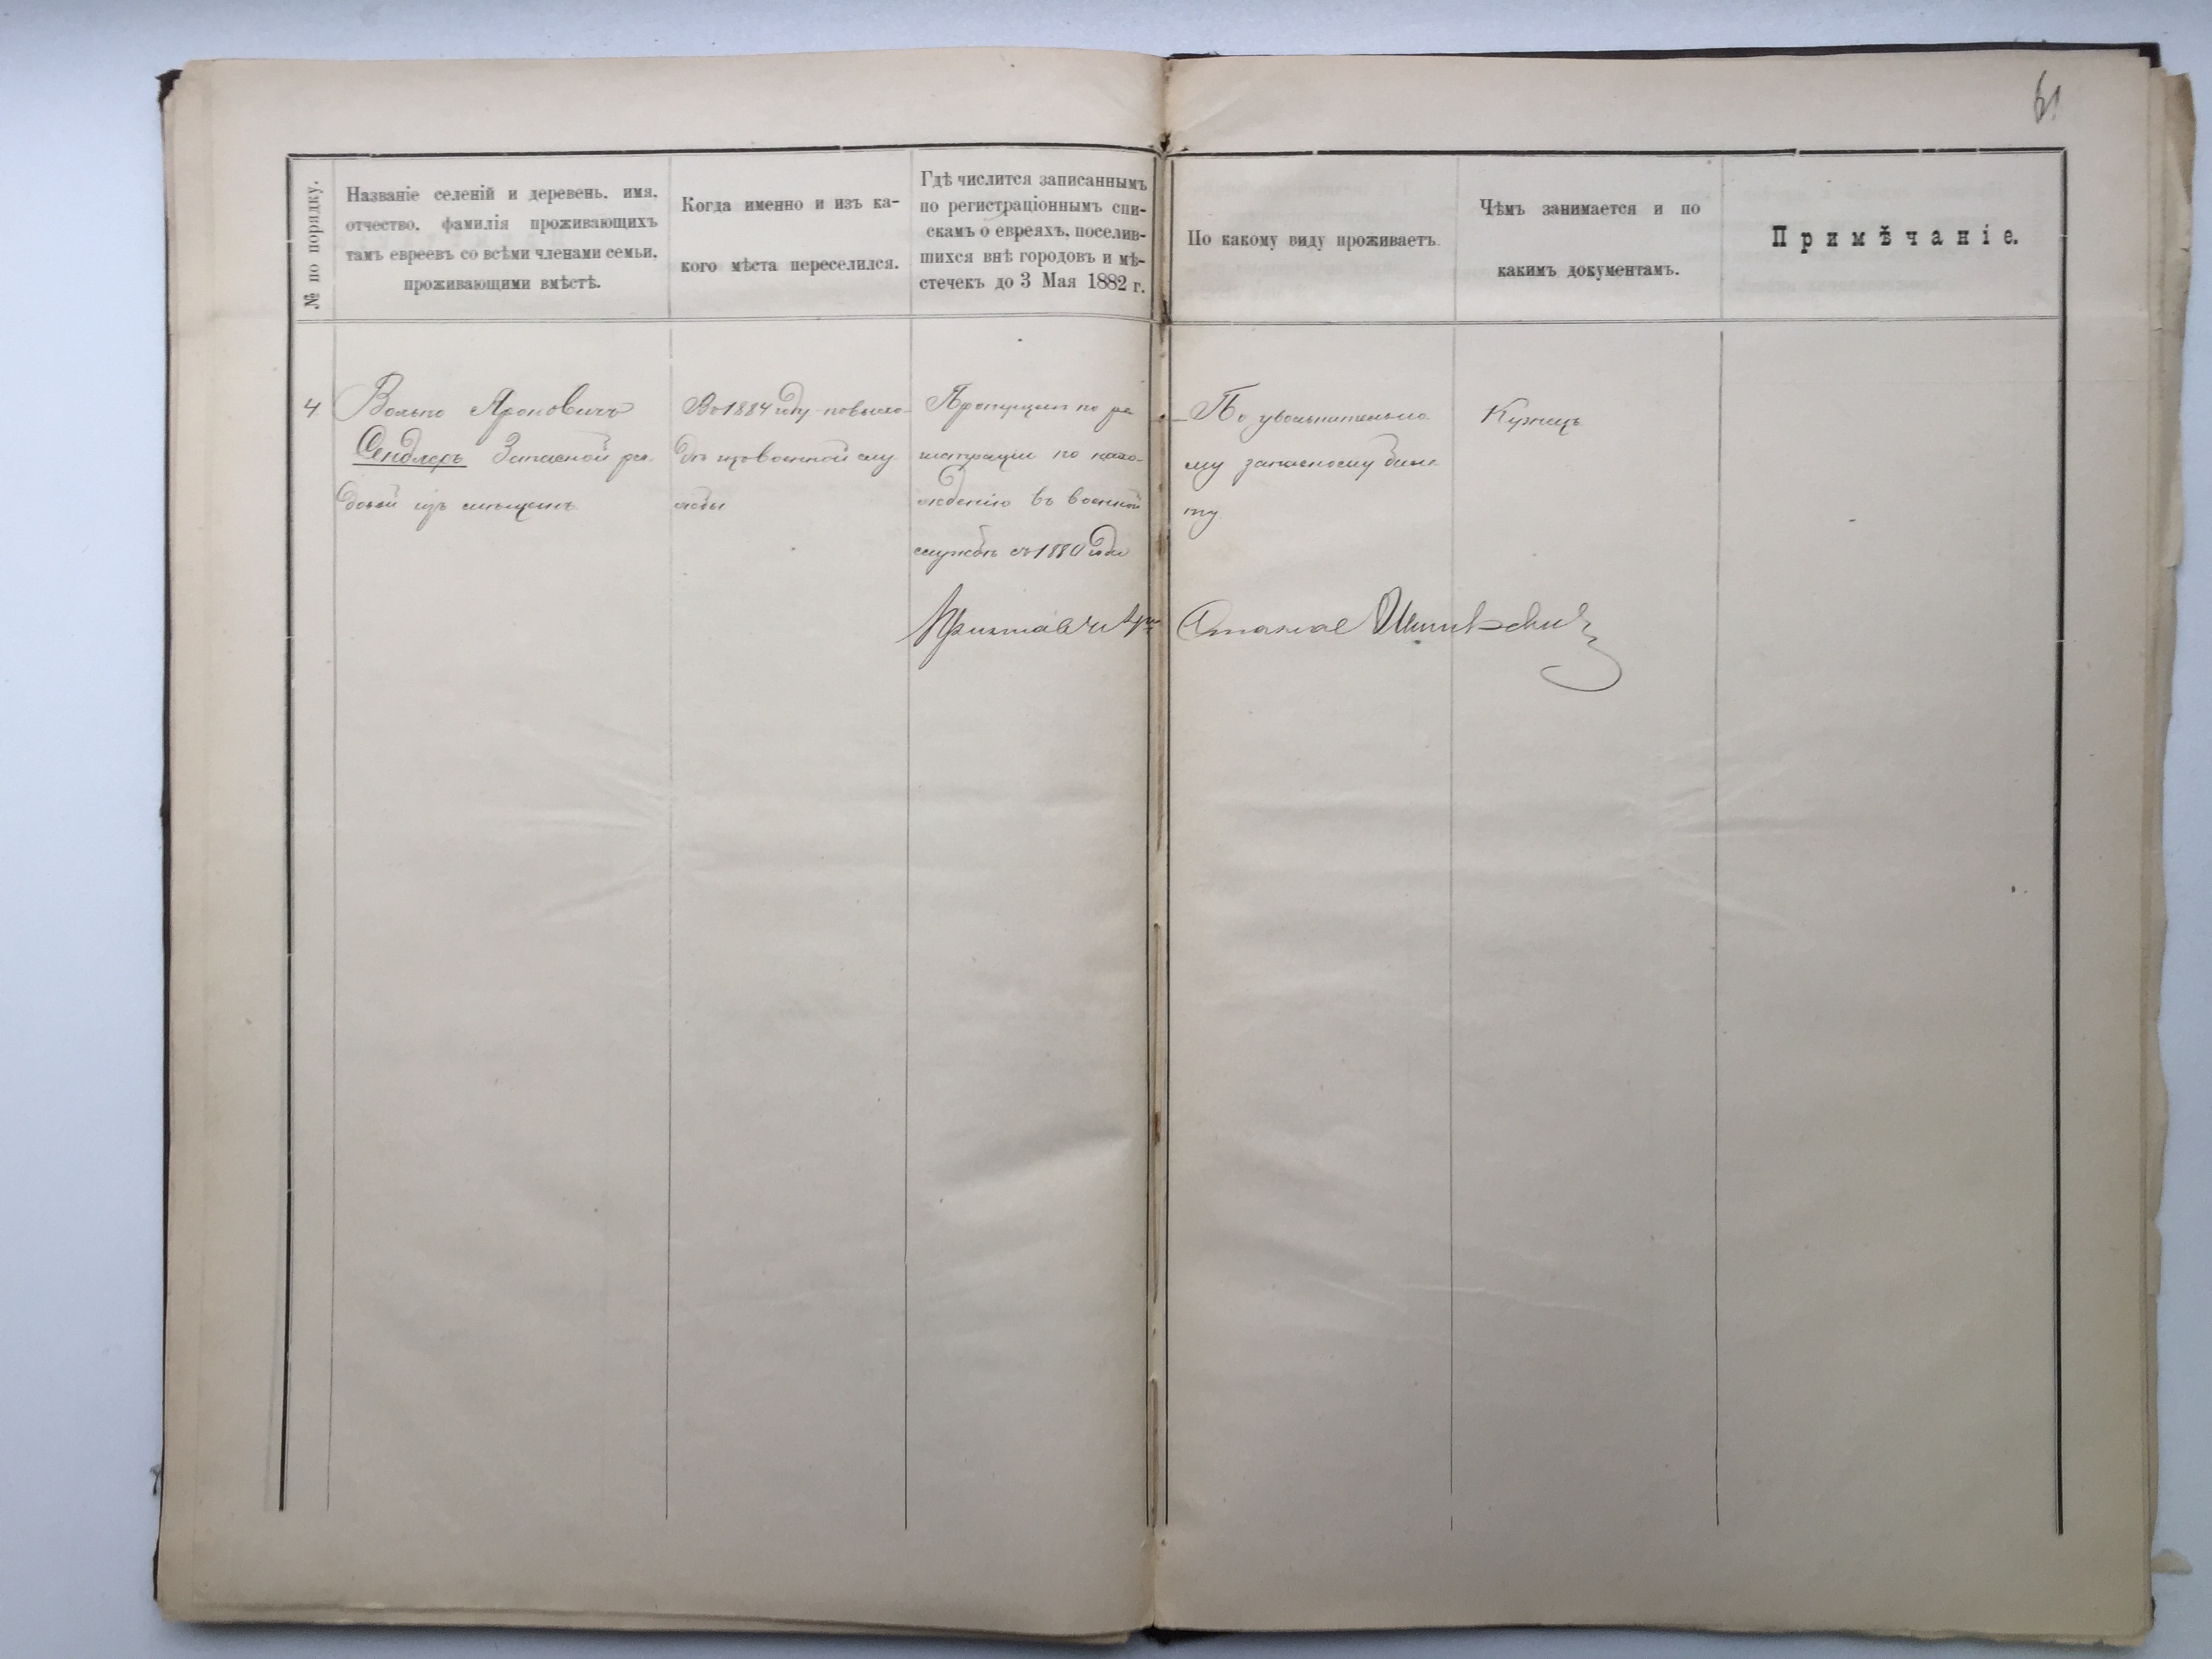 61
№ по порядку.
Названіе селеній и деревень, имя,
отчество, фамилія проживающихъ
тамъ евреевъ со всѣми членами семьи,
проживающими вмѣстѣ.
Когда именно и изъ ка-
кого мѣста переселился.
Гдѣ числится записаннымъ
по регистраціоннымъ спи-
скамъ о евреяхъ, поселив-
шихся внѣ городовъ и мѣ-
стечекъ до 3 Мая 1882 г.
По какому виду проживаетъ.
Чѣмъ занимается и по
какимъ документамъ.
Примѣчаніе.
4
Вольпо Ароновичъ
Сендлеръ Запасной ря-
довой изъ мѣщанъ
Въ 1884 году по выхо-
дѣ изъ военной слу
жбы
Пропущен по ре
гистраціи по нахо-
жденію въ военной
службѣ съ 1880 года
По увольнительно
му запасному биле
ту.
Кузнецъ